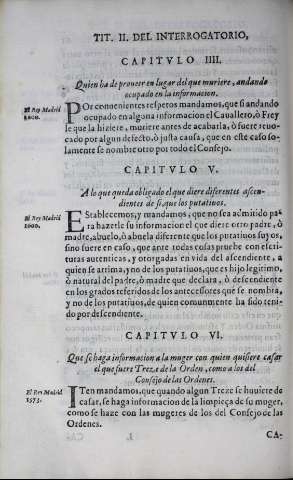 TIT. II. DEL INTERROGATORIO,
CAPITVLO IIII.
Quien ha de proueer en lugar del que muriere, andando
ocupado en la informacion.
El Rey Madrid
1600.
POr conuenientes respetos mandamos, que si andando
ocupado en alguna informacion el Cauallero, ò Frey
le que la hiziere, muriere antes de acabarla, ò fuere reuo-
cado por algun defecto, ò justa causa, que en este caso so-
lamente se nombre otro por todo el Consejo.
CAPITVLO V.
A lo que queda obligado el que diere diferentes ascen-
dientes de si, que los putatiuos.
El Rey Madrid
1600.
EStablecemos, y mandamos, que no sea admitido pa-
ra hazerle su informacion el que diere otro padre, ò
madre, abuelo, ò abuela diferente que los putatiuos suyos,
sino fuere en caso, que ante todas cosas prueue con escri-
turas autenticas, y otorgadas en vida del ascendiente, a
quien se arrima, y no de los putatiuos, que es hijo legitimo,
ò natural del padre, ò madre que declara, ò descendiente
en los grados referidos de los antecessores que se nombra,
y no de los putatiuos, de quien comunmente ha sido teni-
do por descendiente.
CAPITVLO VI.
Que se haga informacion a la muger con quien quisiere casar
el que fuere Treze de la Orden, como a los del
Consejo de las Ordenes.
El Rey Madrid
1573.
ITen mandamos, que quando algun Treze se huuiere de
casar, se haga informacion de la limpieça de su muger,
como se haze con las mugeres de los del Consejo de las
Ordenes.
CA-